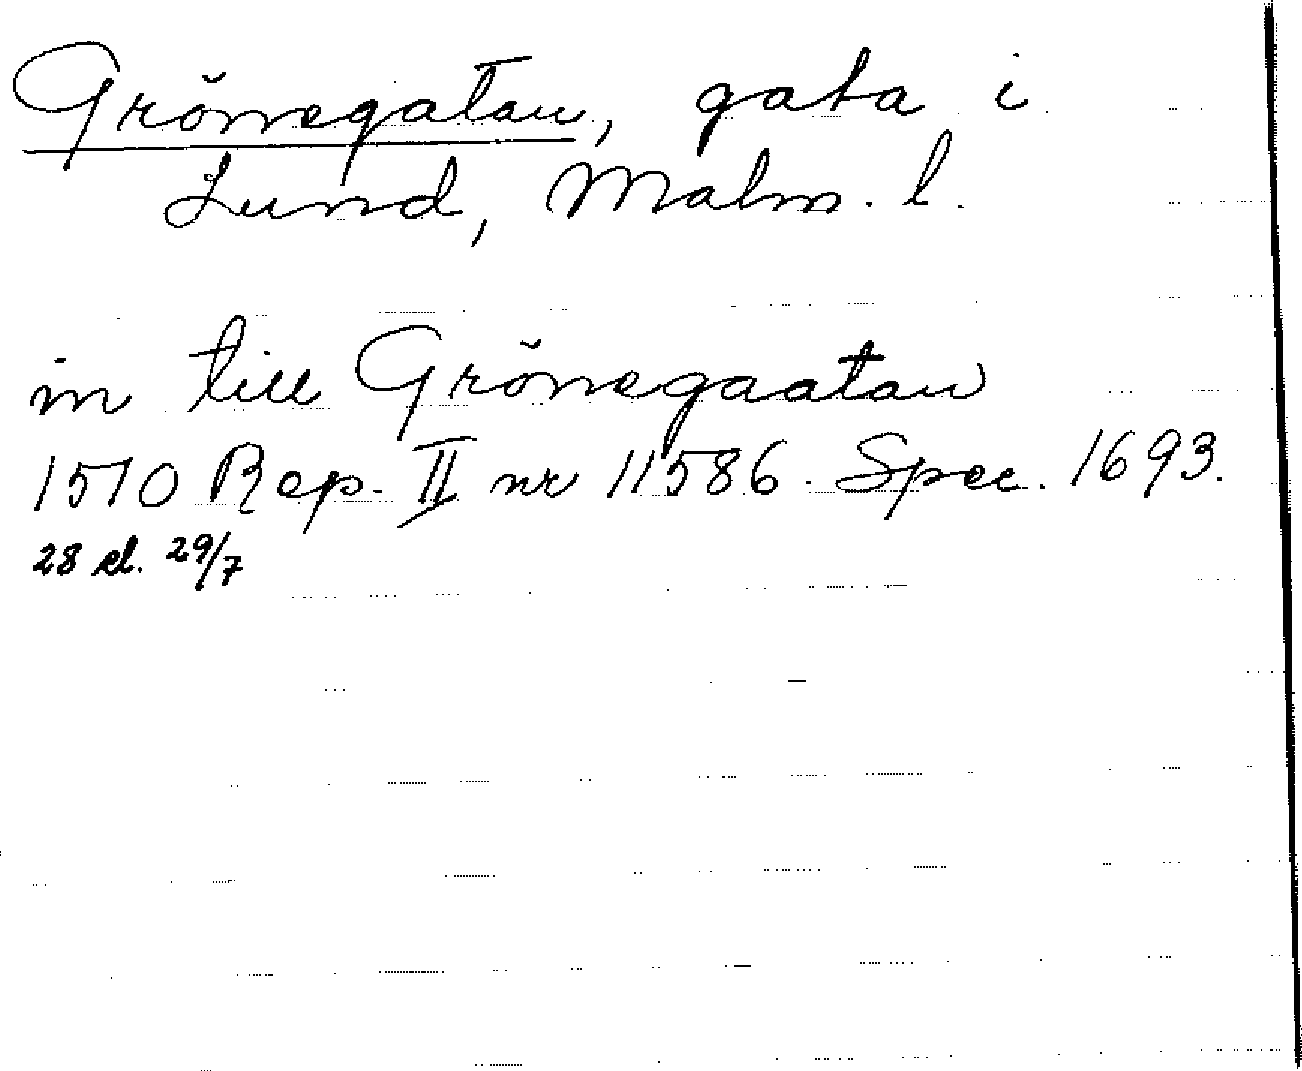 Grönegatan, gata i
Lund, Malm. l.
in till Grönegaatan
1510 Rep. II nr 11586. Spec. 1693.
28 el. 29/7